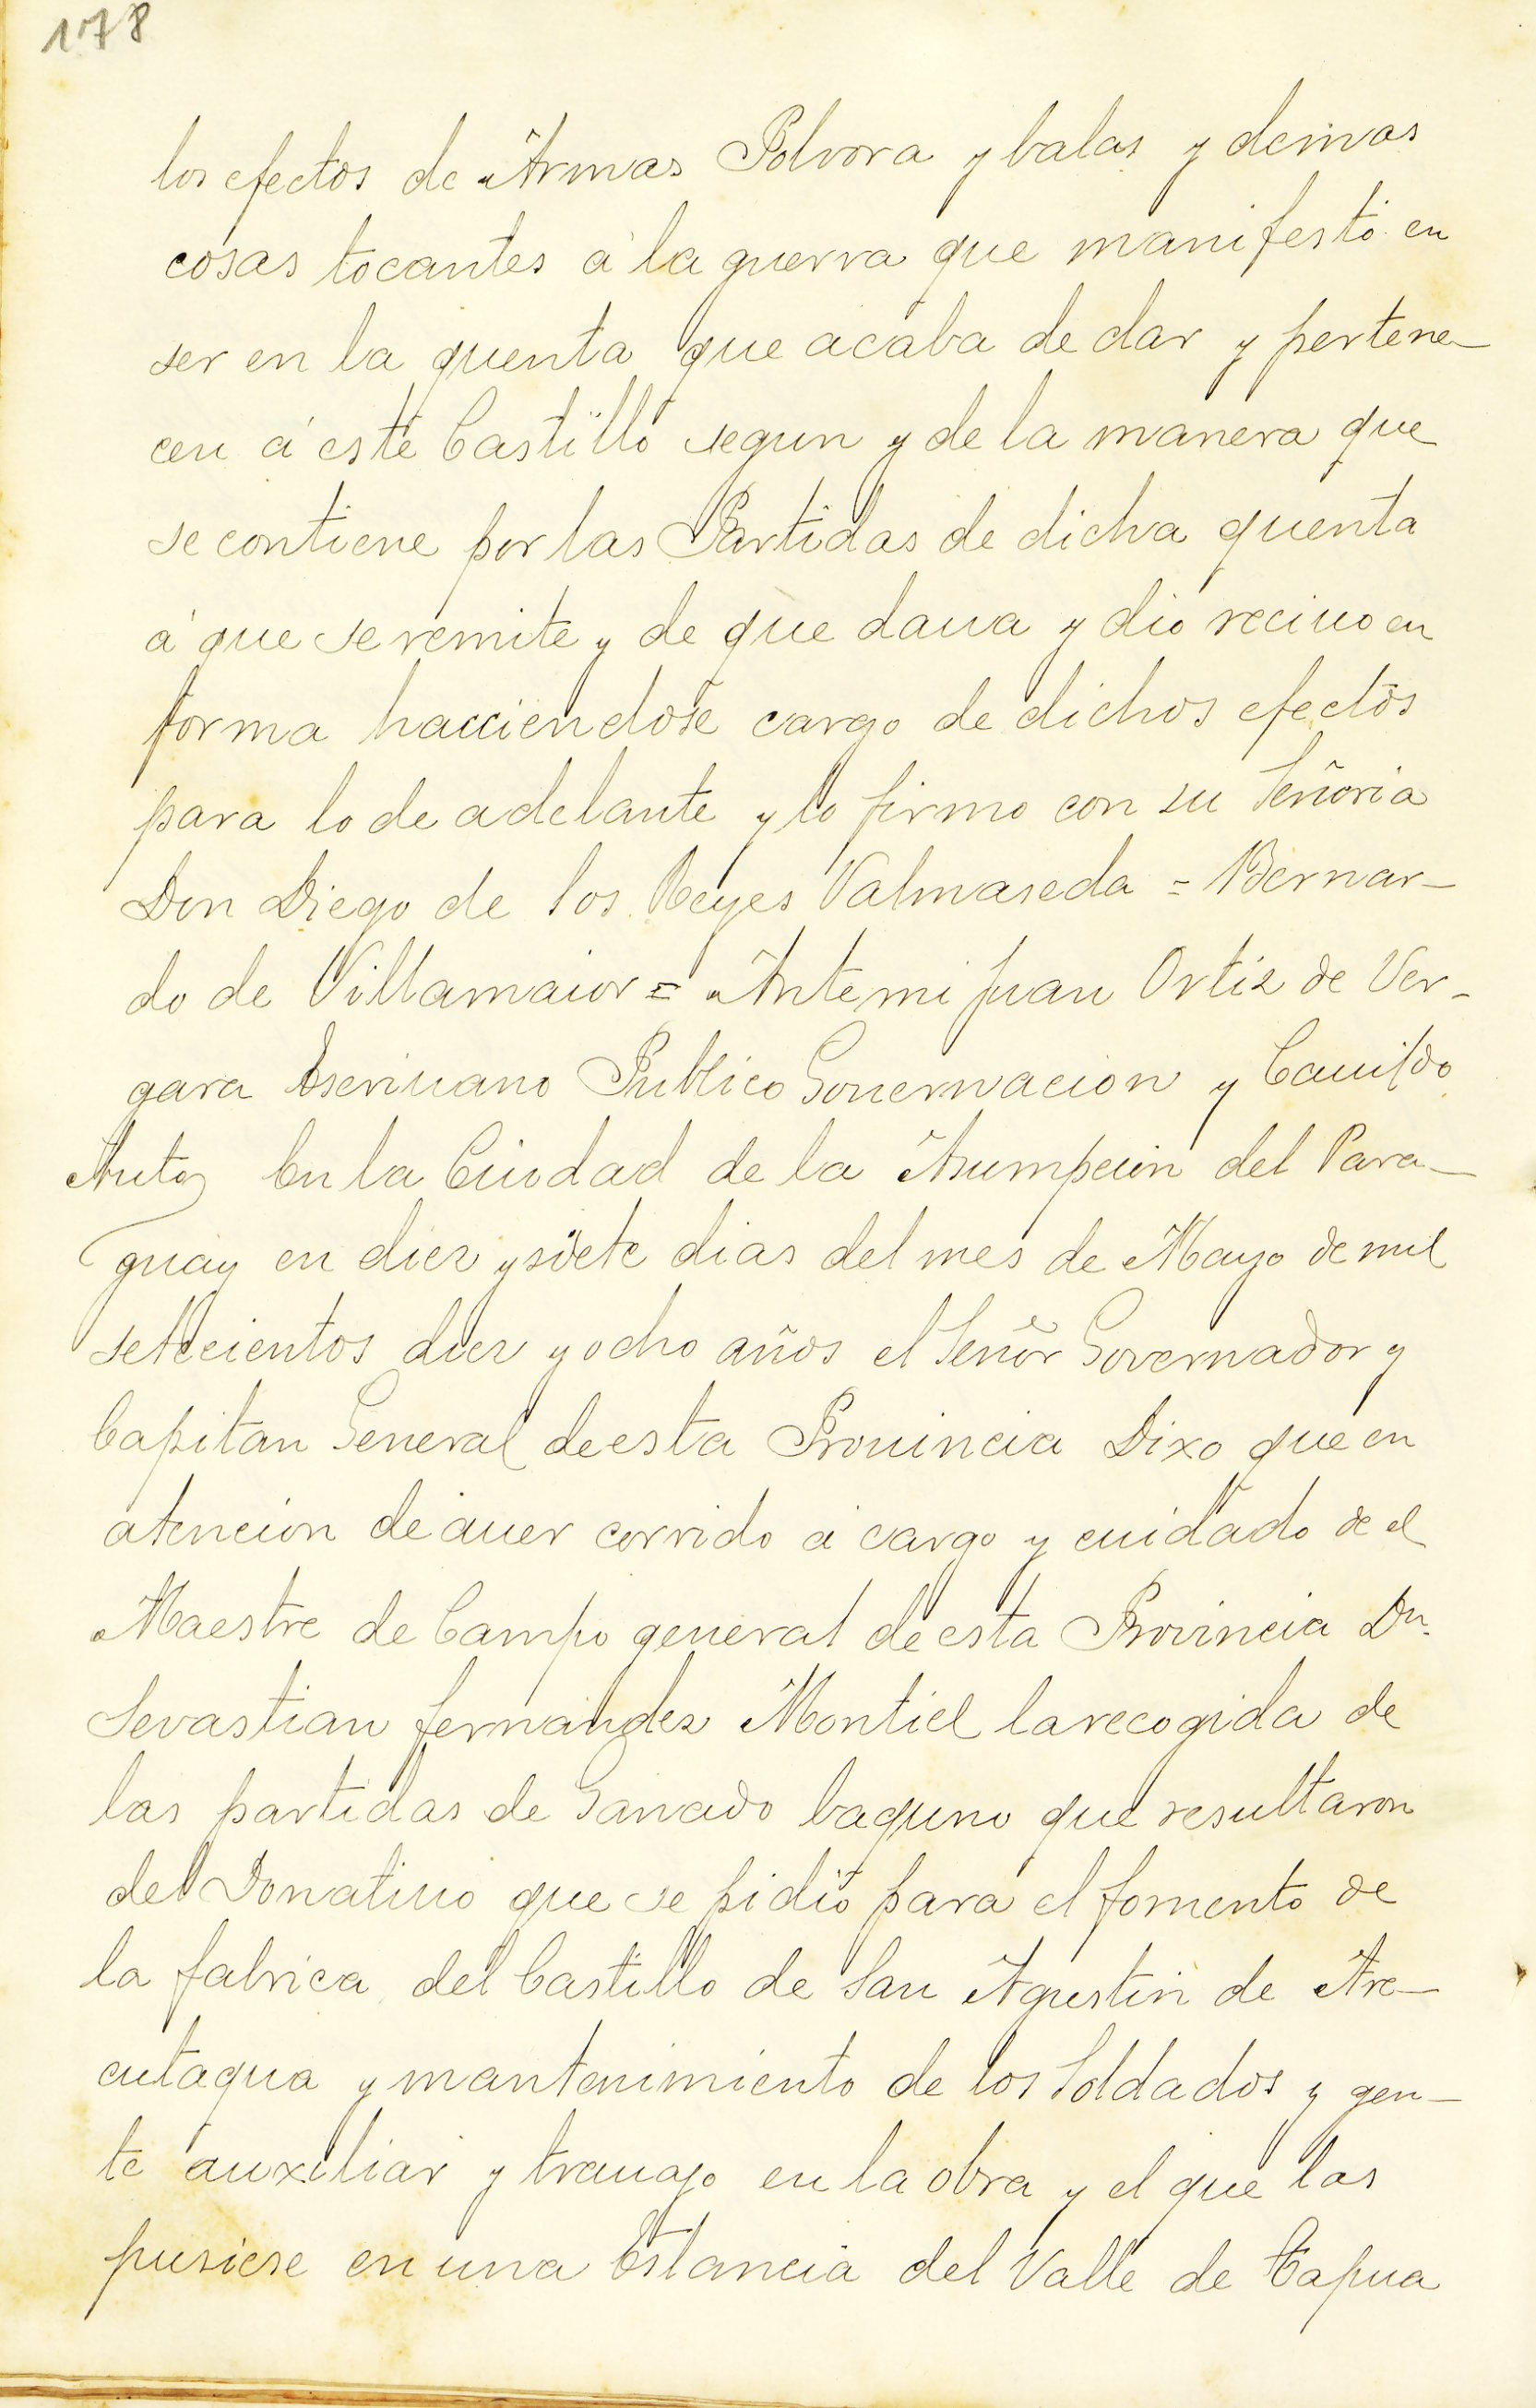 178
los efectos de Armas Polvora y balas y demas
cosas tocantes á la guerra que manifestó en
ser en la quenta que acaba de dar y pertene-
cen á este Castillo segun y de la manera que
se contiene por las Partidas de dicha quenta
á que se remite y de que daua y dio reciuo en
forma hacciendose cargo de dichos efectos
para lo de adelante y lo firmo con su Señoria
Don Diego de los Reyes Valmaseda = Bernar-
do de Villamaior = Ante mi Juan Ortiz de Ver-
gara Escriuano Publico Gouernacion y Cauildo
Auto En la Ciudad de la Asumpcion del Para-
guay en diez y siete dias del mes de Mayo de mil
setecientos diez y ocho años el Señor Governador y
Capitan General de esta Prouincia Dixo que en
atencion de auer corrido á cargo y cuidado de el
Maestre de Campo general de esta Provincia Dn.
Sevastian fernandez Montiel la recogida de
las partidas de Ganado baquno que resultaron
del Donatiuo que se pidió para el fomento de
la fabrica del Castillo de San Agustin de Are-
cutagua y mantenimiento de los Soldados y gen-
te auxiliar y trauajo en la obra y el que las
pusiese en una Estancia del Valle de Tapua